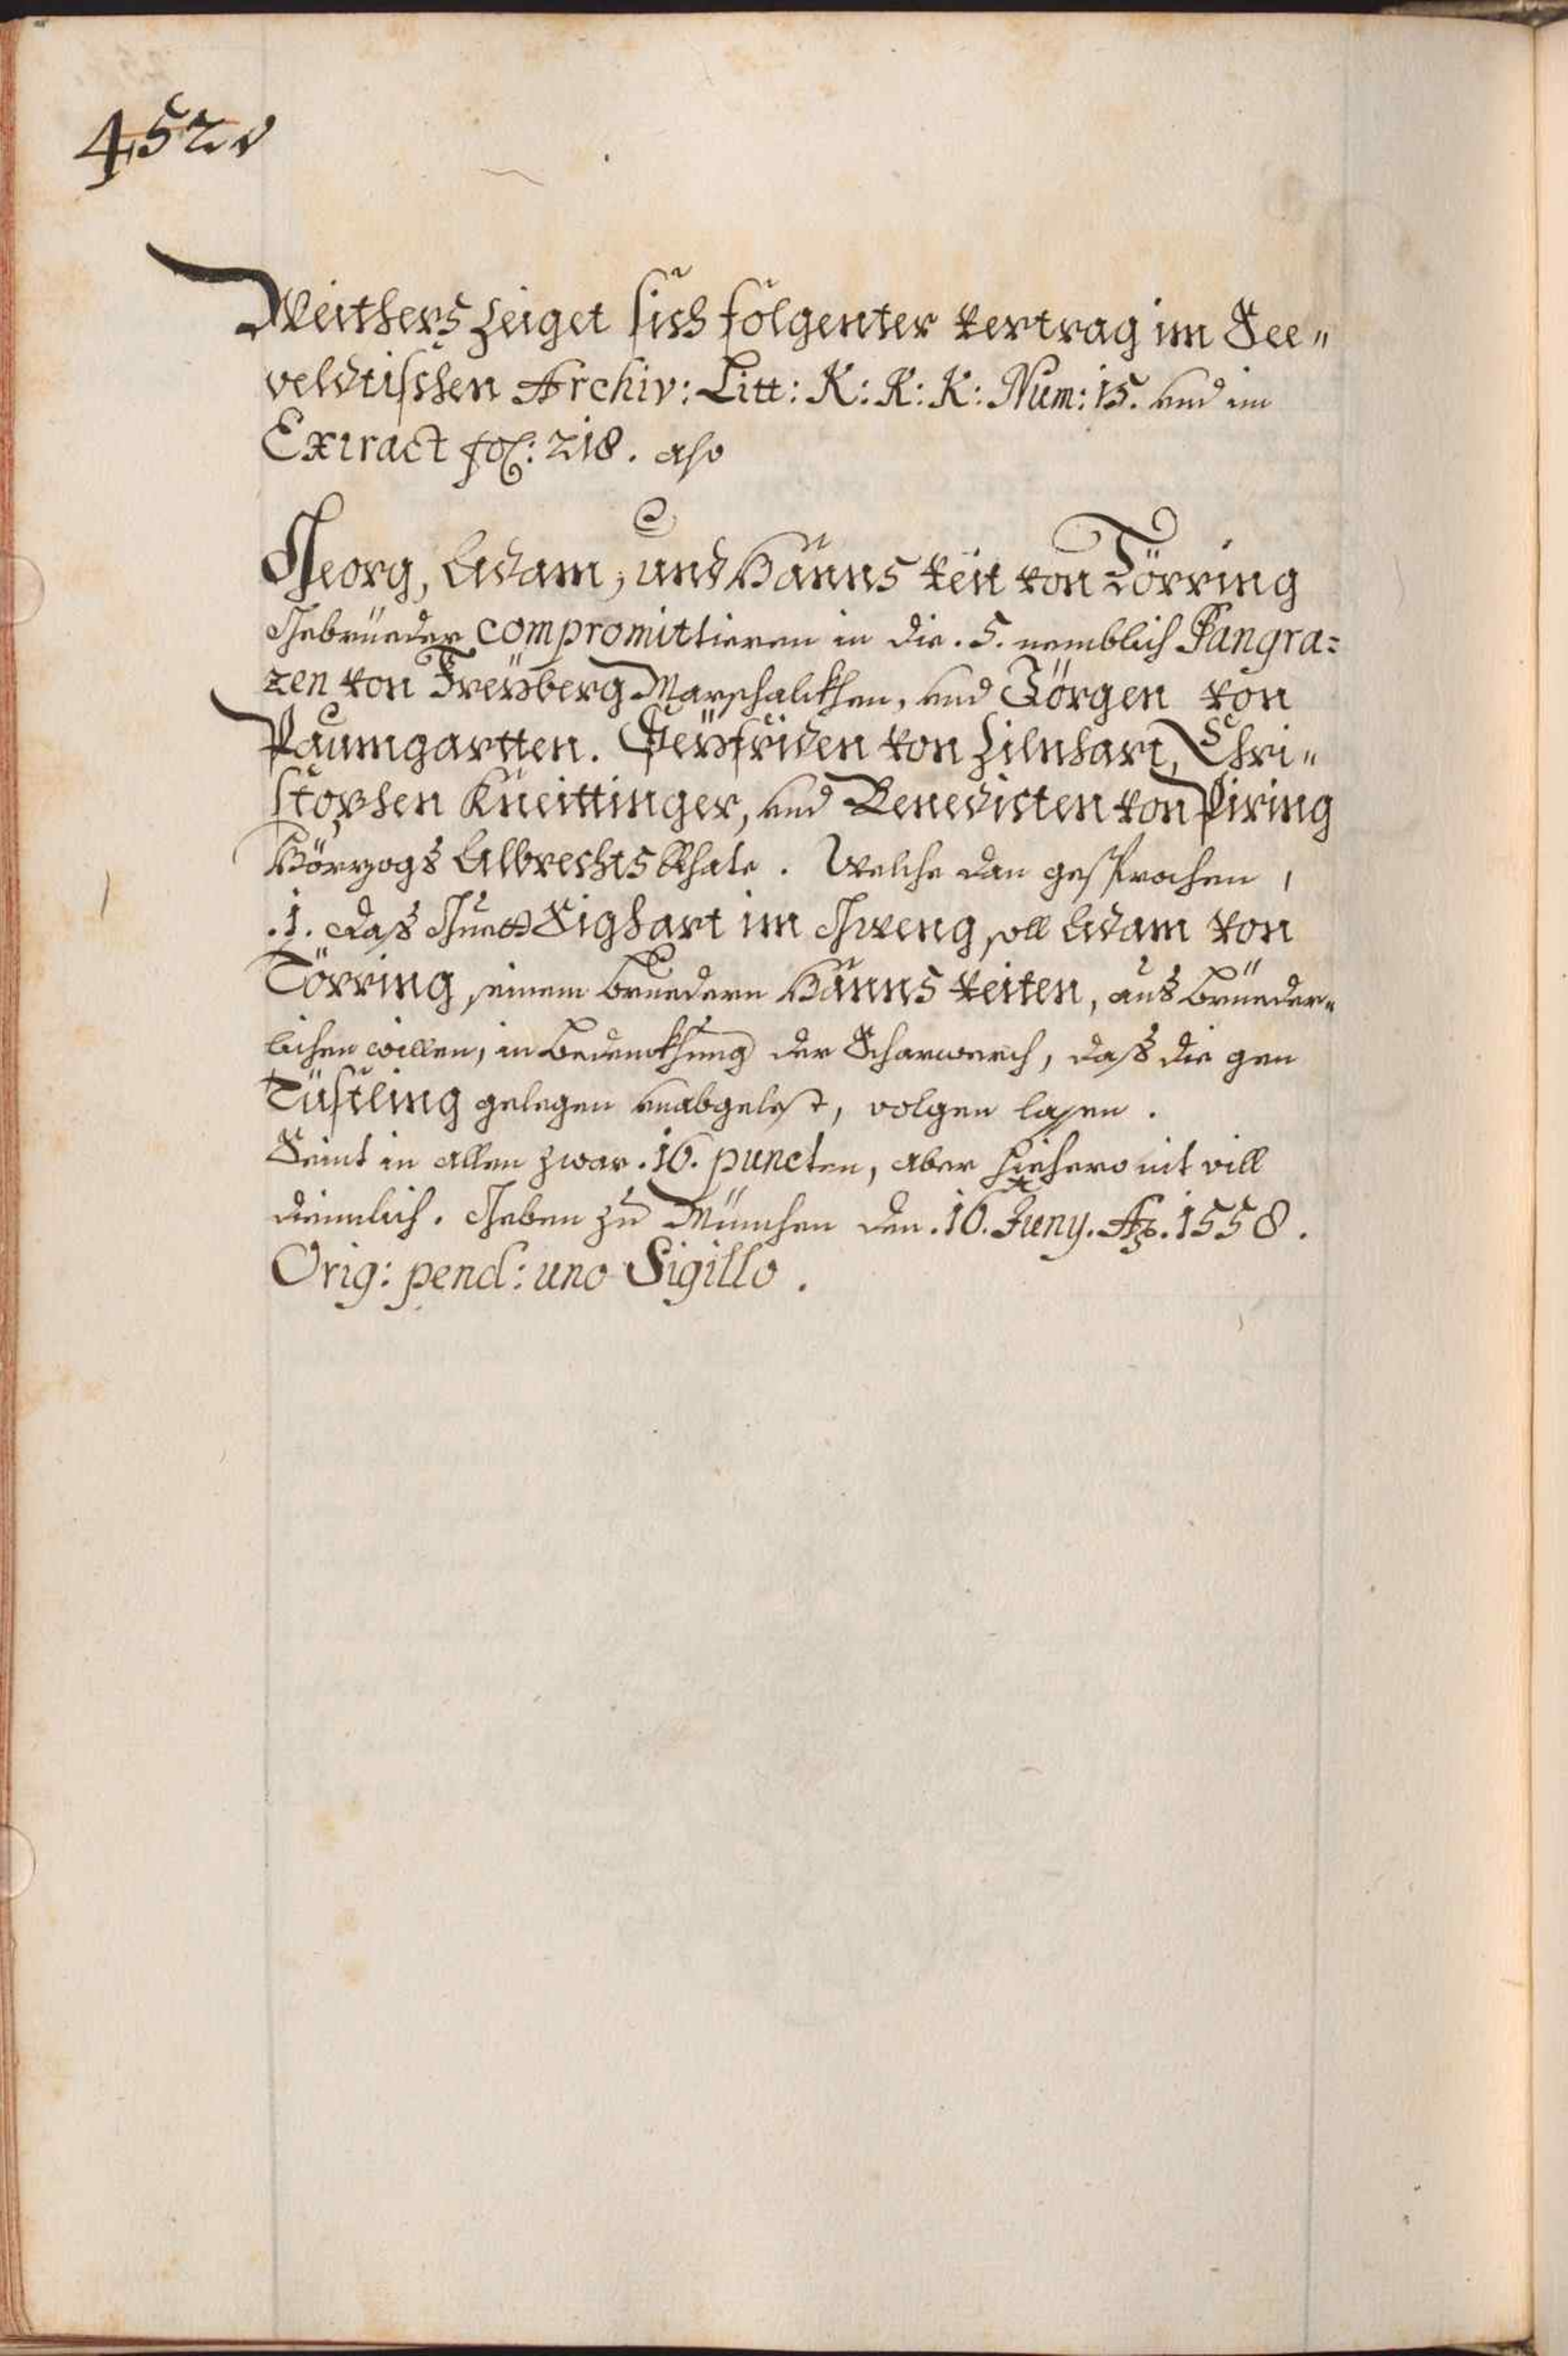 452v
Weithers zeiget sich folgenter vertrag im See„
veldtischen Archiv: Litt: K: K: K: Num: 15. und im
Extract fol: 218. also
Georg, Adam, und Hanns Veit von Törring
Gebrüeder compromittieren in die .5. nemblich Pangra=
zen von Freÿberg Marschalckhen, und Jörgen von
Paumgartten. Seÿfriden von Zilnhart, Chri„
stophen Kneittinger, und Benedicten von Piring
Hörzogs Albrechts Rhäte. Welche dan gesprochen,
.1. Das Guett Sighart im Gweng, soll Adam von
Törring, seinem bruedern Hanns Veiten, aus brüeder„
lichen willen, in bedenckhung der Scharwerch, daß die gen
Tüstling gelegen unabgelest, volgen lassen.
Seint in allen zwar .16. puncten, aber hiehero nit vill
diennlich. Geben zu München den .16. Juny. Ao. 1558.
Orig: pend: uno Sigillo.